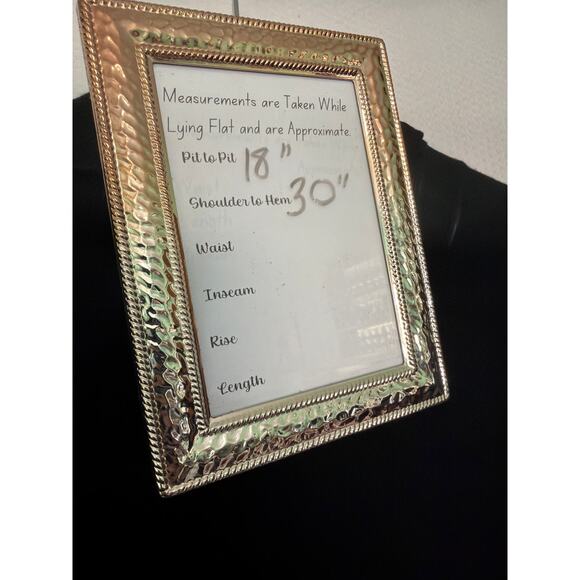 Measurements are Taken While
Lying Flat and are Approximate.
Pit to Pit 18"
Shoulder to Hem 30"
Waist
Inseam
Rise
Length